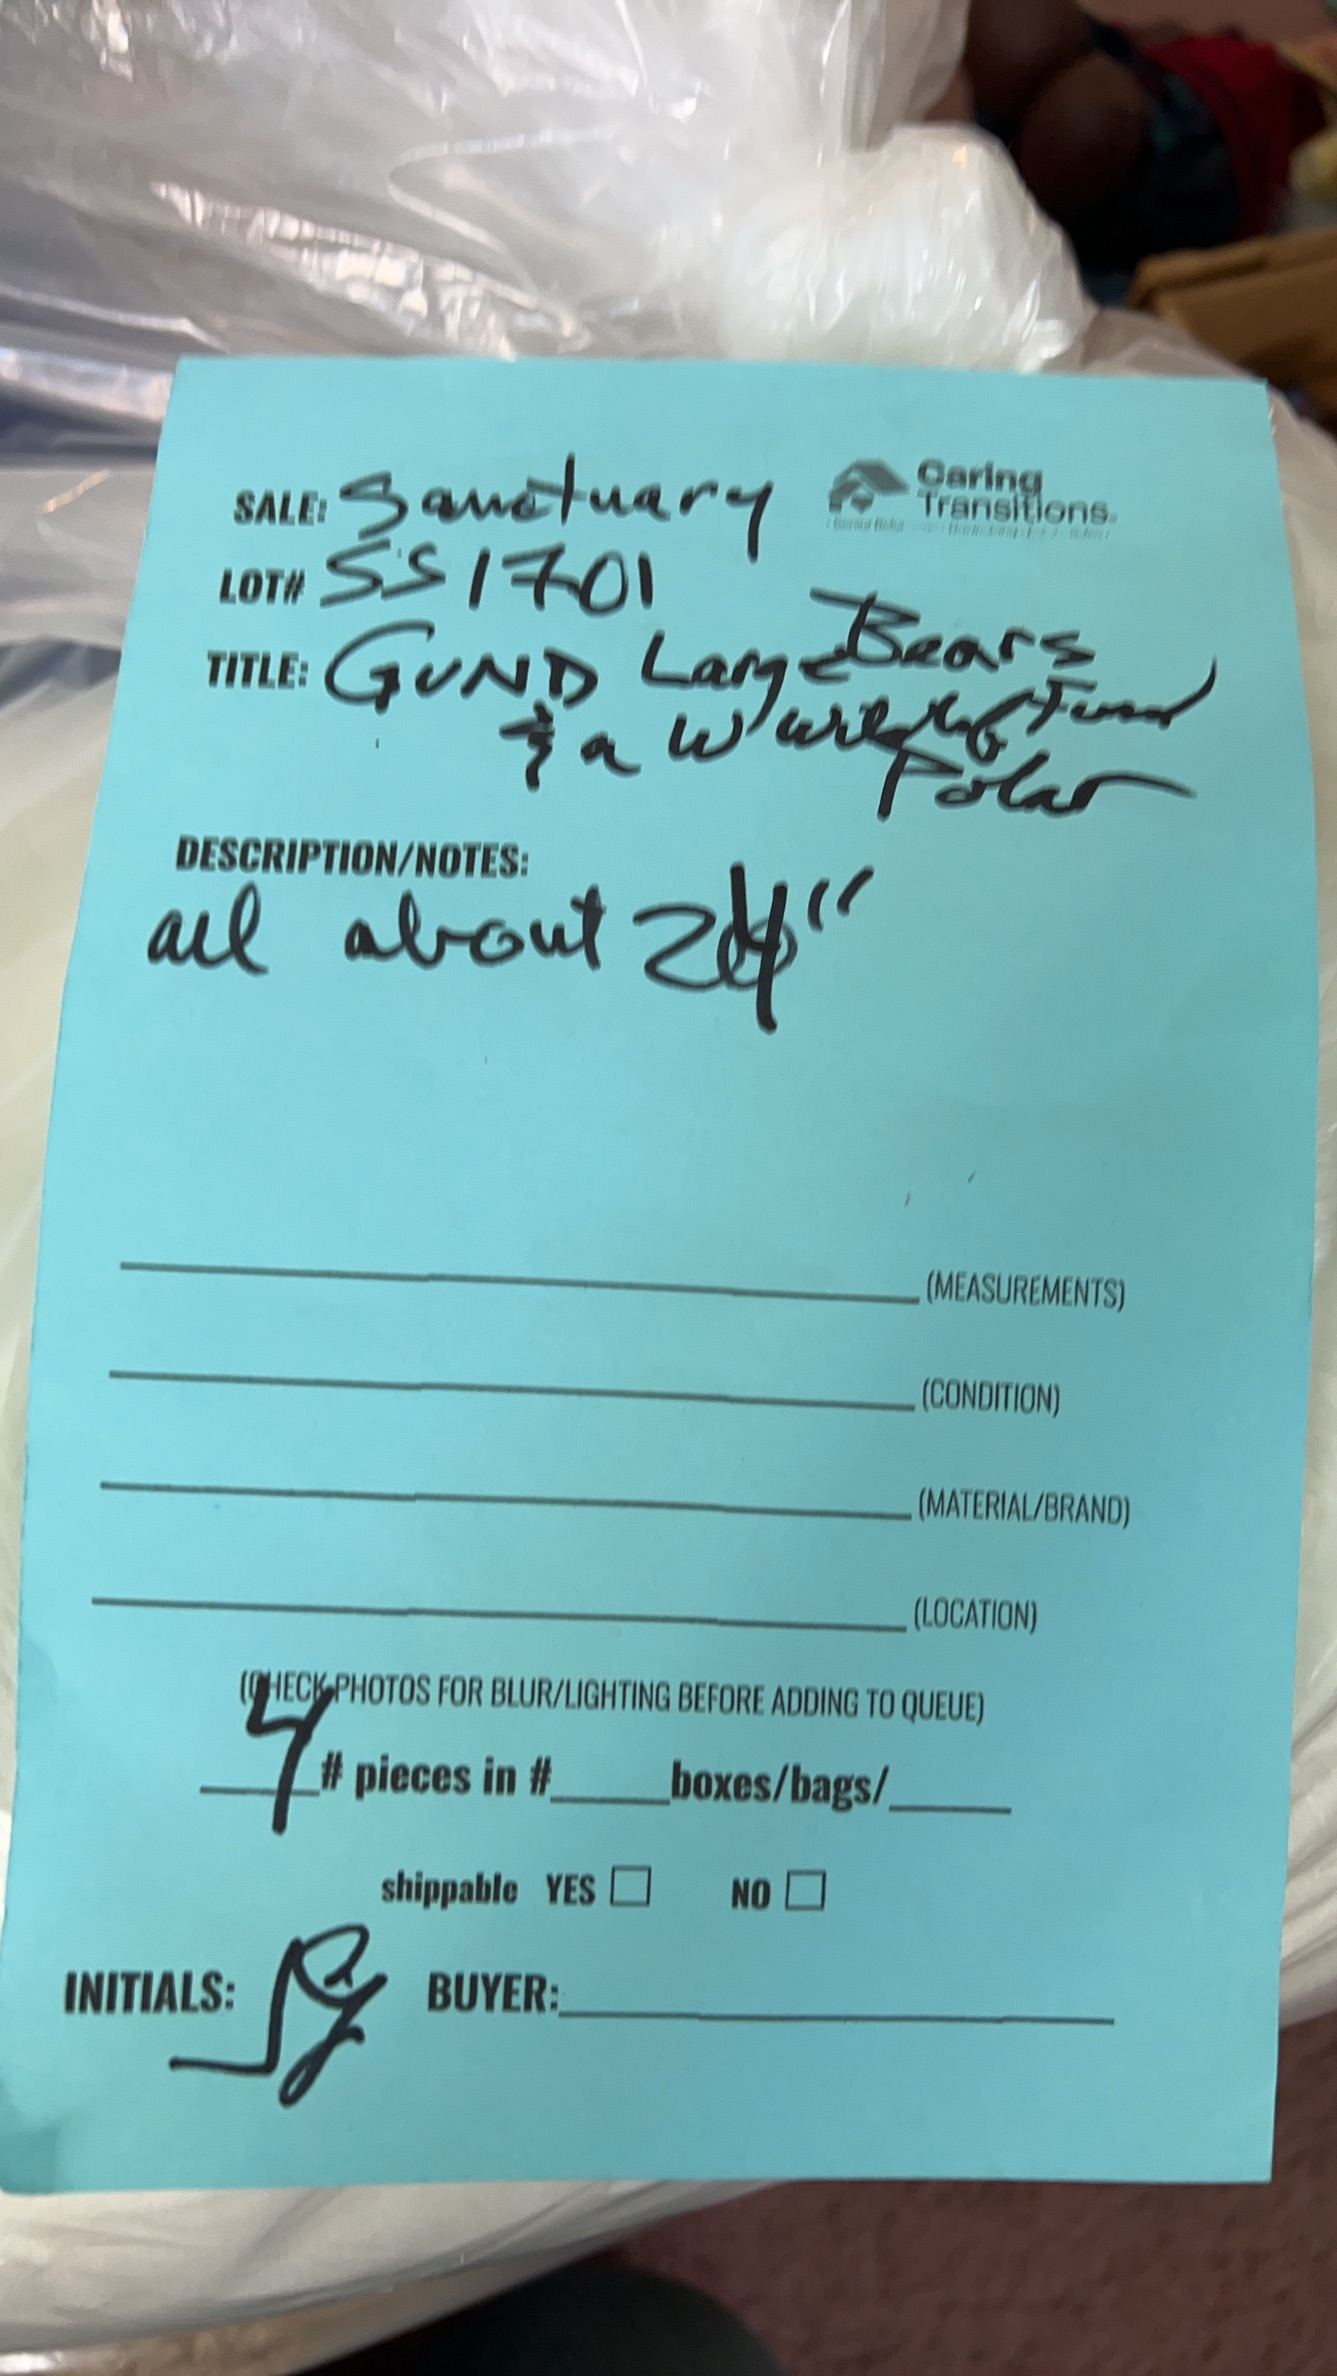 Caring
Transitions
SALE: Sanctuary
LOT# SS1701
TITLE: GUND Large Bears
& a W Wildlife Fund
Polar
DESCRIPTION/NOTES:
all about 24"
(MEASUREMENTS)
(CONDITION)
(MATERIAL/BRAND)
(LOCATION)
(CHECK PHOTOS FOR BLUR/LIGHTING BEFORE ADDING TO QUEUE)
4 # pieces in #_____boxes/bags/_____
shippable YES ☐ NO ☐
INITIALS: BUYER: